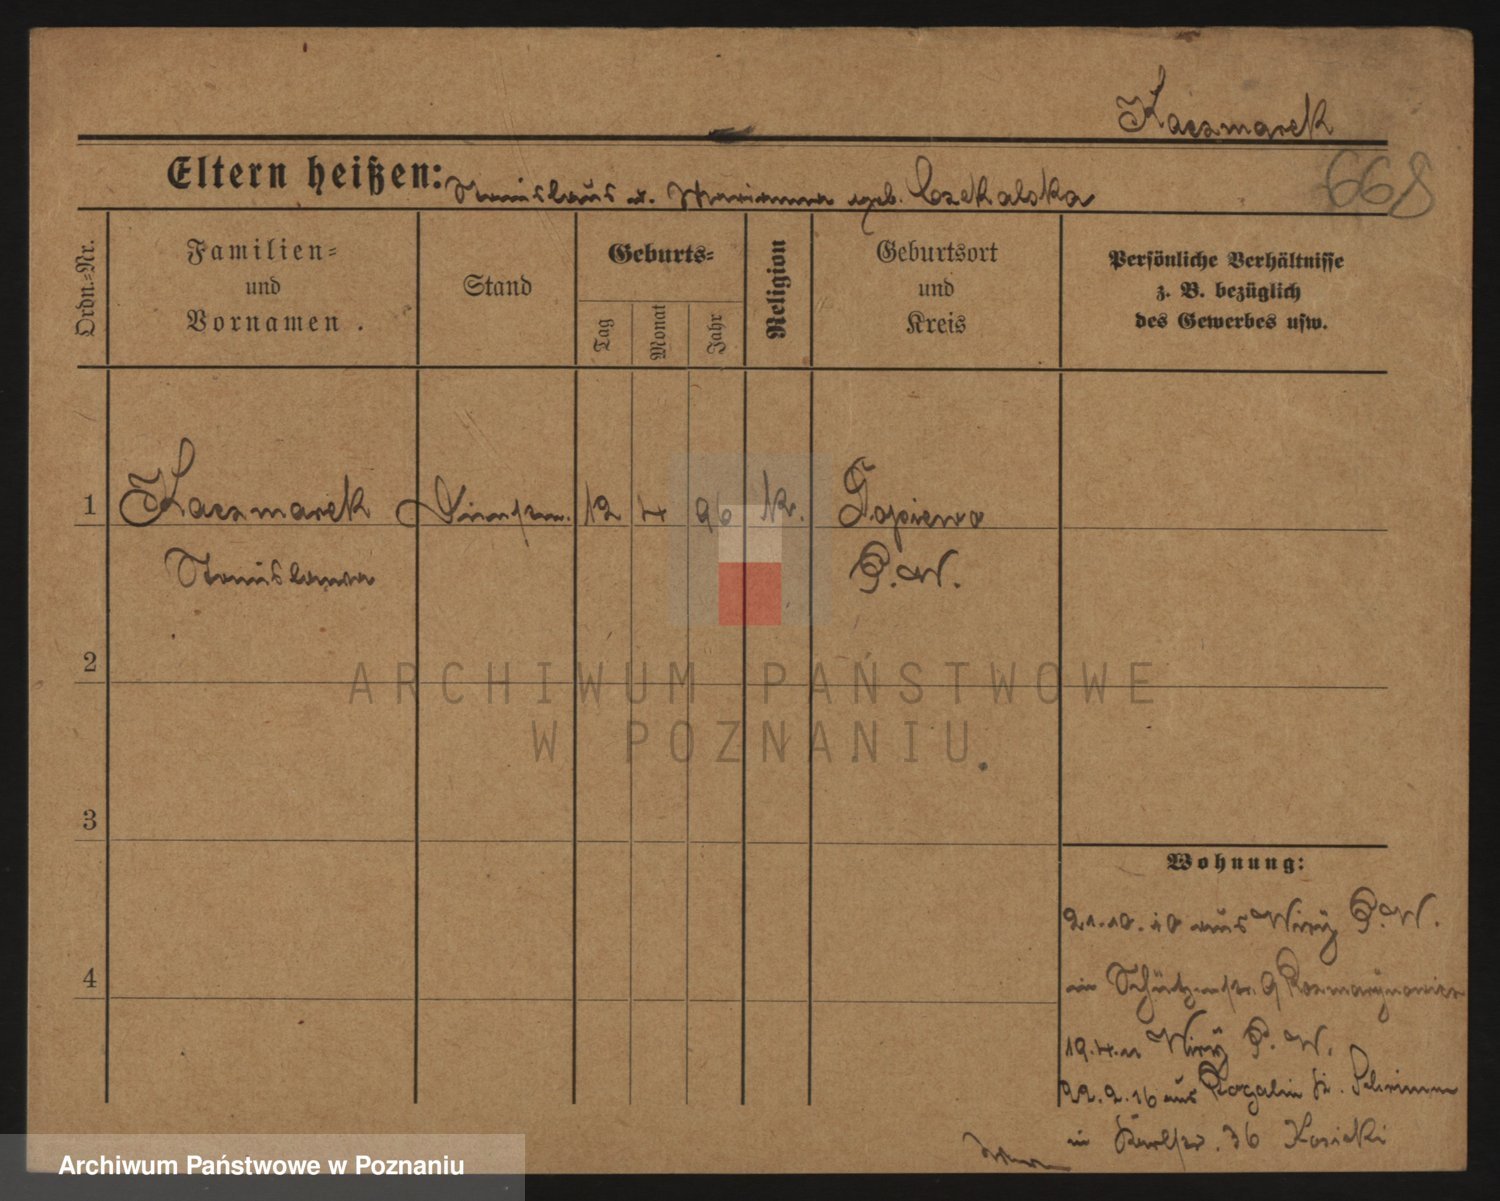 Kaczmarek
668
Eltern heißen: Stanislaus u. Marianna geb. Czekalska
Ordn.-Nr.
Familien-
und
Vornamen.
Stand
Geburts-
Tag
Monat
Jahr
Religion
Geburtsort
und
Kreis
Persönliche Verhältnisse
z. B. bezüglich
des Gewerbes usw.
1 Kaczmarek 12 4 96 k.
Stanislawa P.W.
2
ARCHIWUM PAŃSTWOWE
W POZNANIU
3
4
Wohnung:
21.10.10 aus Wiry P.W.
in Schützenstr. 9
19.4.11 Wiry P.W.
22.2.16 aus Rogalin Kr. Schrimm
in Karlstr. 36 Kosicki
Archiwum Państwowe w Poznaniu